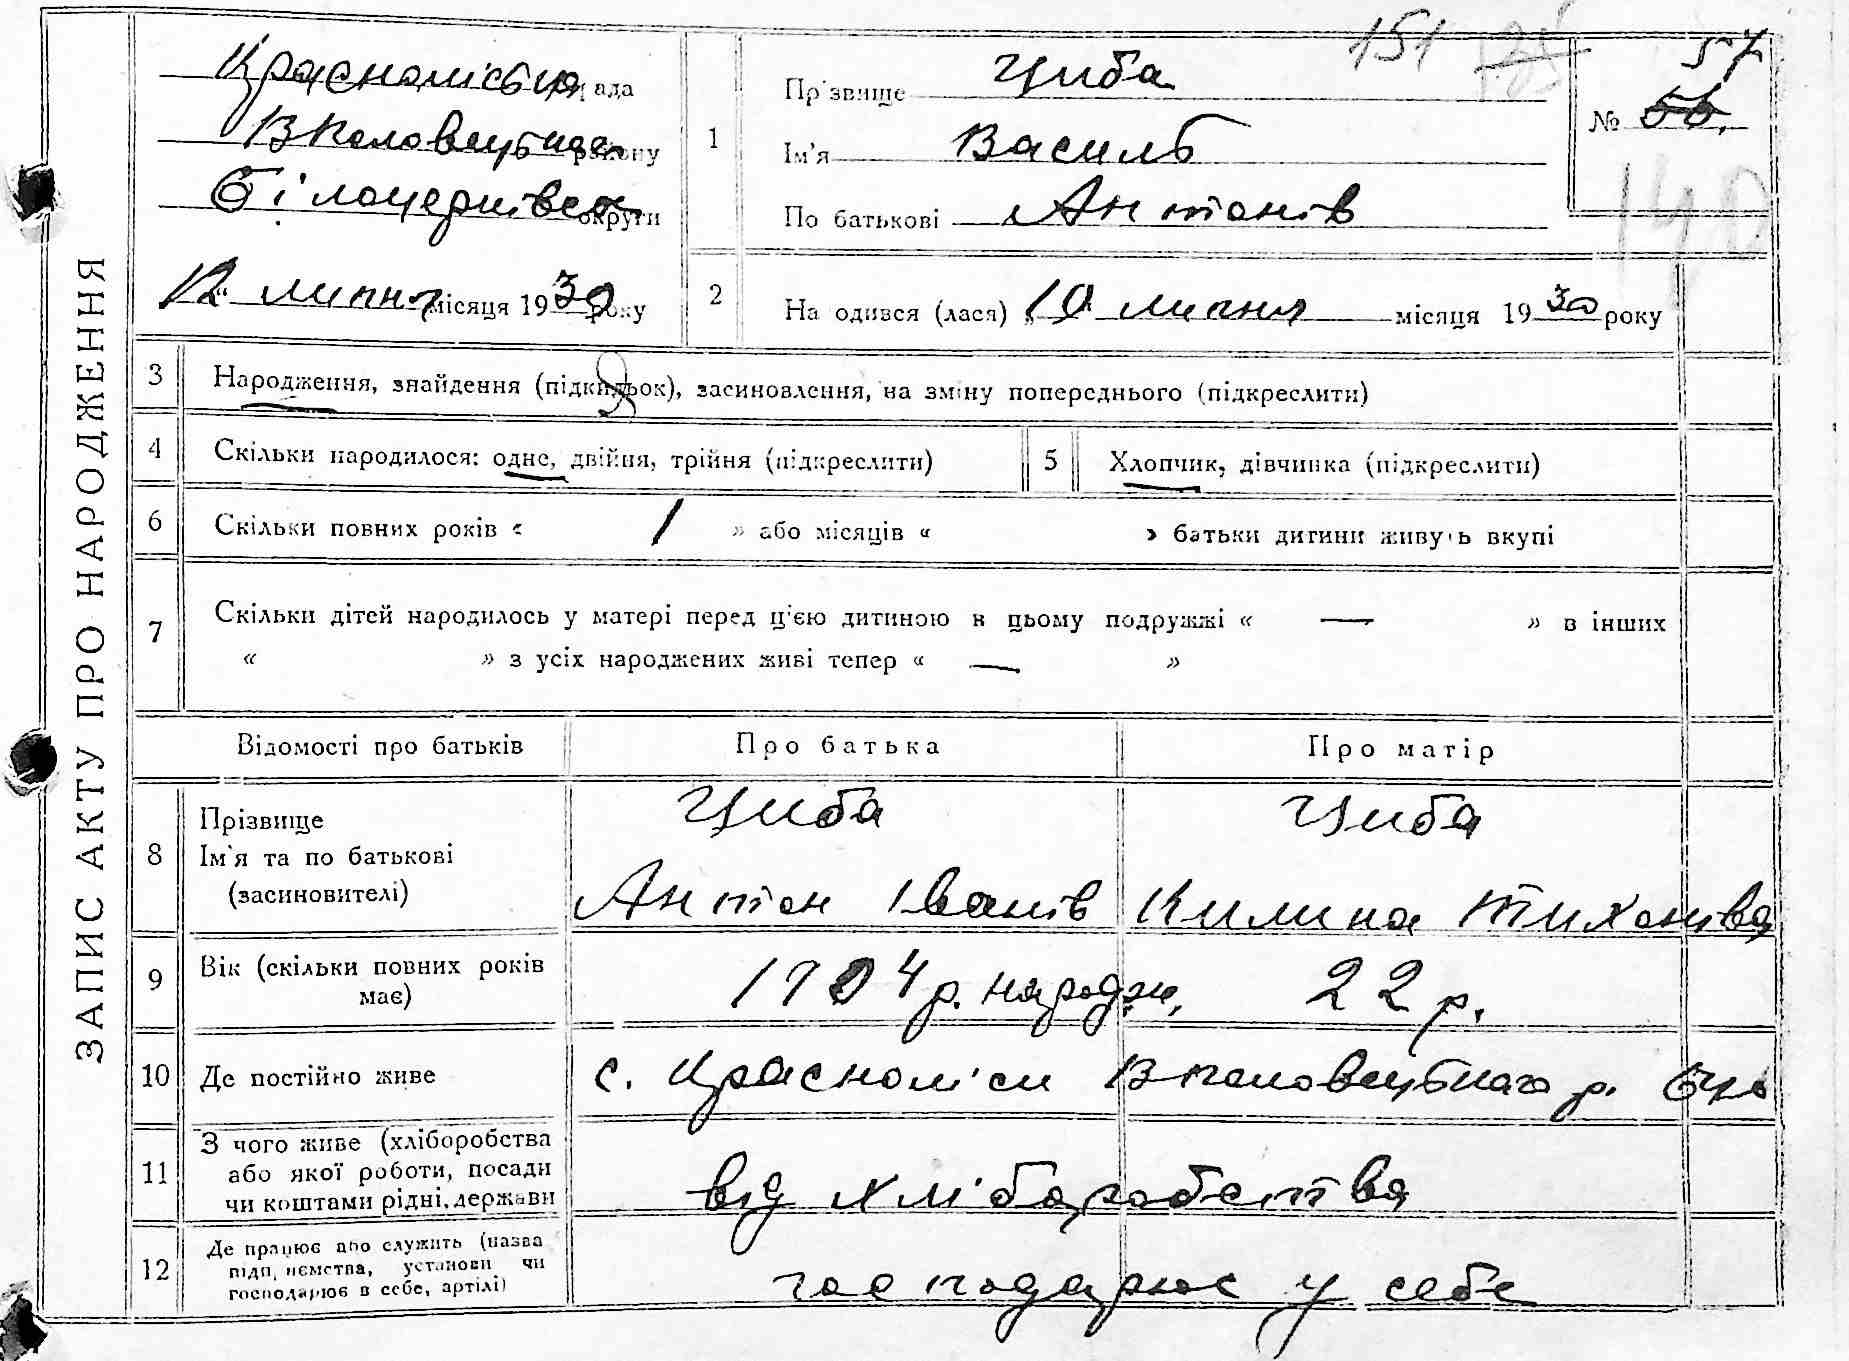 ЗАПИС АКТУ ПРО НАРОДЖЕННЯ
151
57
Красноліська рада
району
Білоцерківська округи
12 липня місяця 1930 року
1
Прізвище Циба
Ім'я Василь
По батькові Антонів
№ 56.
140
2
Народився (лася) „10" липня місяця 1930 року
3
Народження, знайдення (підкидьок), засиновлення, на зміну попереднього (підкреслити)
4
Скільки народилося: одне, двійня, трійня (підкреслити)
5
Хлопчик, дівчинка (підкреслити)
6
Скільки повних років « 1 » або місяців « » батьки дитини живуть вкупі
7
Скільки дітей народилось у матері перед ц'єю дитиною в цьому подружжі « — » в інших
« » з усіх народжених живі тепер « — »
Відомості про батьків
Про батька
Про матір
8
Прізвище
Ім'я та по батькові
(засиновителі)
Циба
Антон Іванів
Циба
Килина Тихонівна
9
Вік (скільки повних років
має)
1904 р. народж.
22 р.
10
Де постійно живе
с. Красноліси р.
11
З чого живе (хліборобства
або якої роботи, посади
чи коштами рідні, держави
від хліборобства
12
Де працює або служить (назва
підприємства, установи чи
господарює в себе, артілі)
господарює у себе